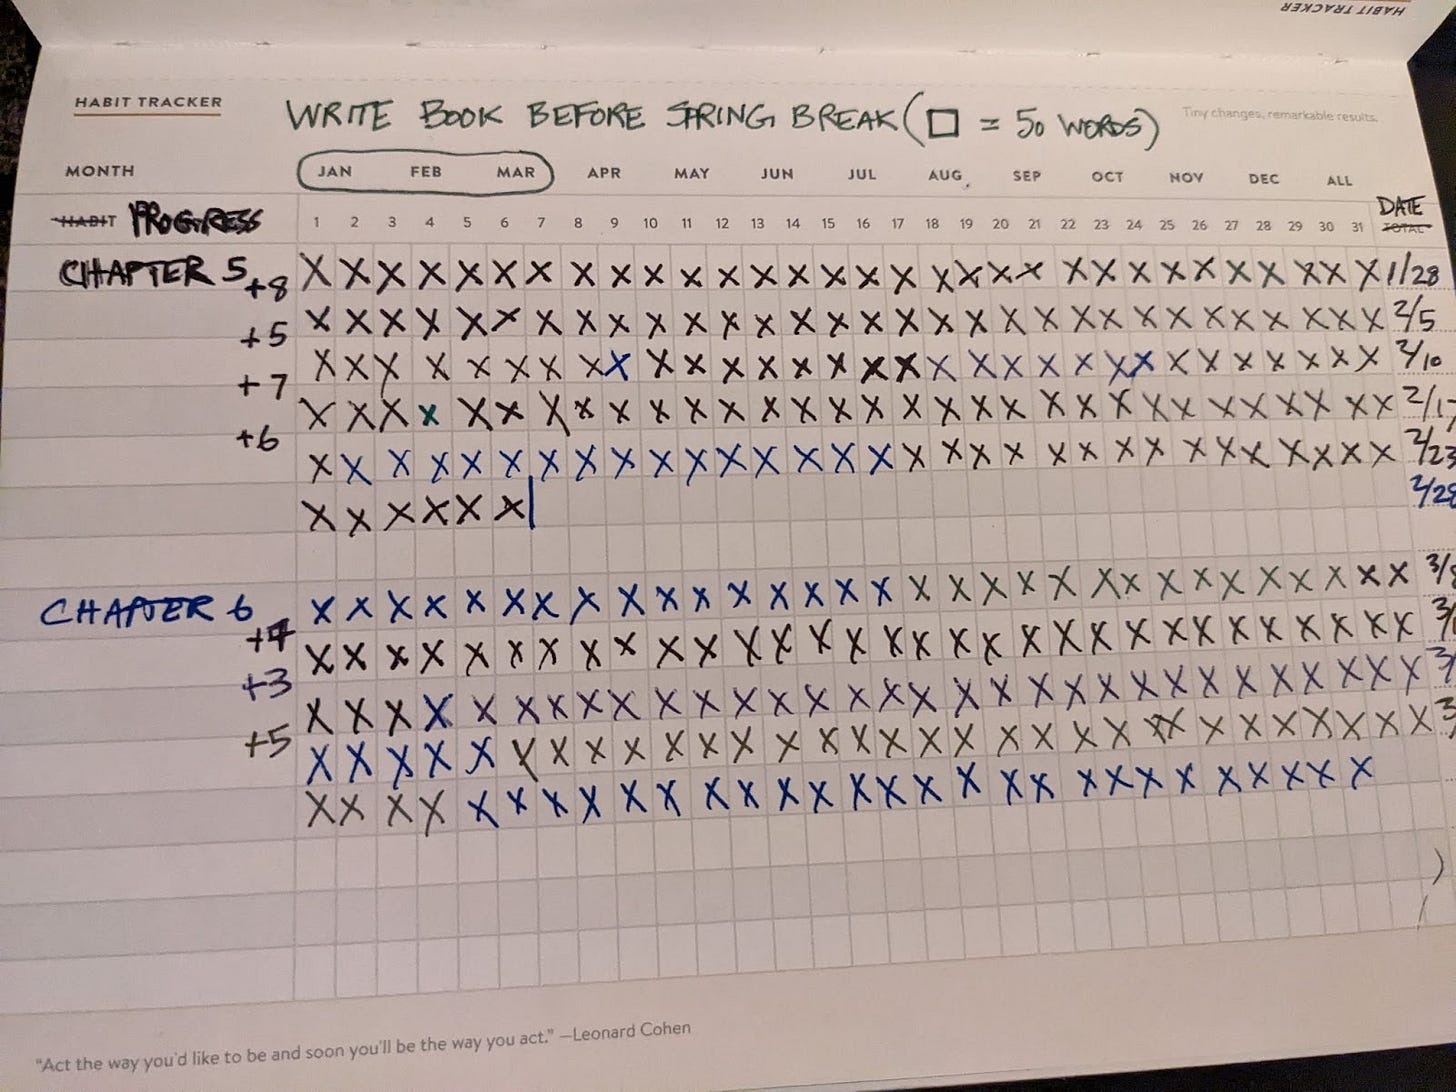 HABIT TRACKER
HABIT TRACKER WRITE BOOK BEFORE SPRING BREAK (□ = 50 WORDS) Tiny changes, remarkable results.
MONTH JAN FEB MAR APR MAY JUN JUL AUG SEP OCT NOV DEC ALL
HABIT PROGRESS 1 2 3 4 5 6 7 8 9 10 11 12 13 14 15 16 17 18 19 20 21 22 23 24 25 26 27 28 29 30 31 DATE TOTAL
CHAPTER 5 X X X X X X X X X X X X X X X X X X X X X X X X X X X X X X X 1/28
+8 X X X X X X X X X X X X X X X X X X X X X X X X X X X X X X X 2/5
+5 X X X X X X X X X X X X X X X X X X X X X X X X X X X X X X X 2/10
+7 X X X X X X X X X X X X X X X X X X X X X X X X X X X X X X X 2/17
+6 X X X X X X X X X X X X X X X X X X X X X X X X X X X X X X X 2/23
X X X X X X 2/28
CHAPTER 6 X X X X X X X X X X X X X X X X X X X X X X X X X X X X X X X
X X X X X X X X X X X X X X X X X X X X X X X X X X X X X X X
+3 X X X X X X X X X X X X X X X X X X X X X X X X X X X X X X X
+5 X X X X X X X X X X X X X X X X X X X X X X X X X X X X X X X
X X X X X X X X X X X X X X X X X X X X X X X X X X X X X
“Act the way you'd like to be and soon you'll be the way you act.” —Leonard Cohen